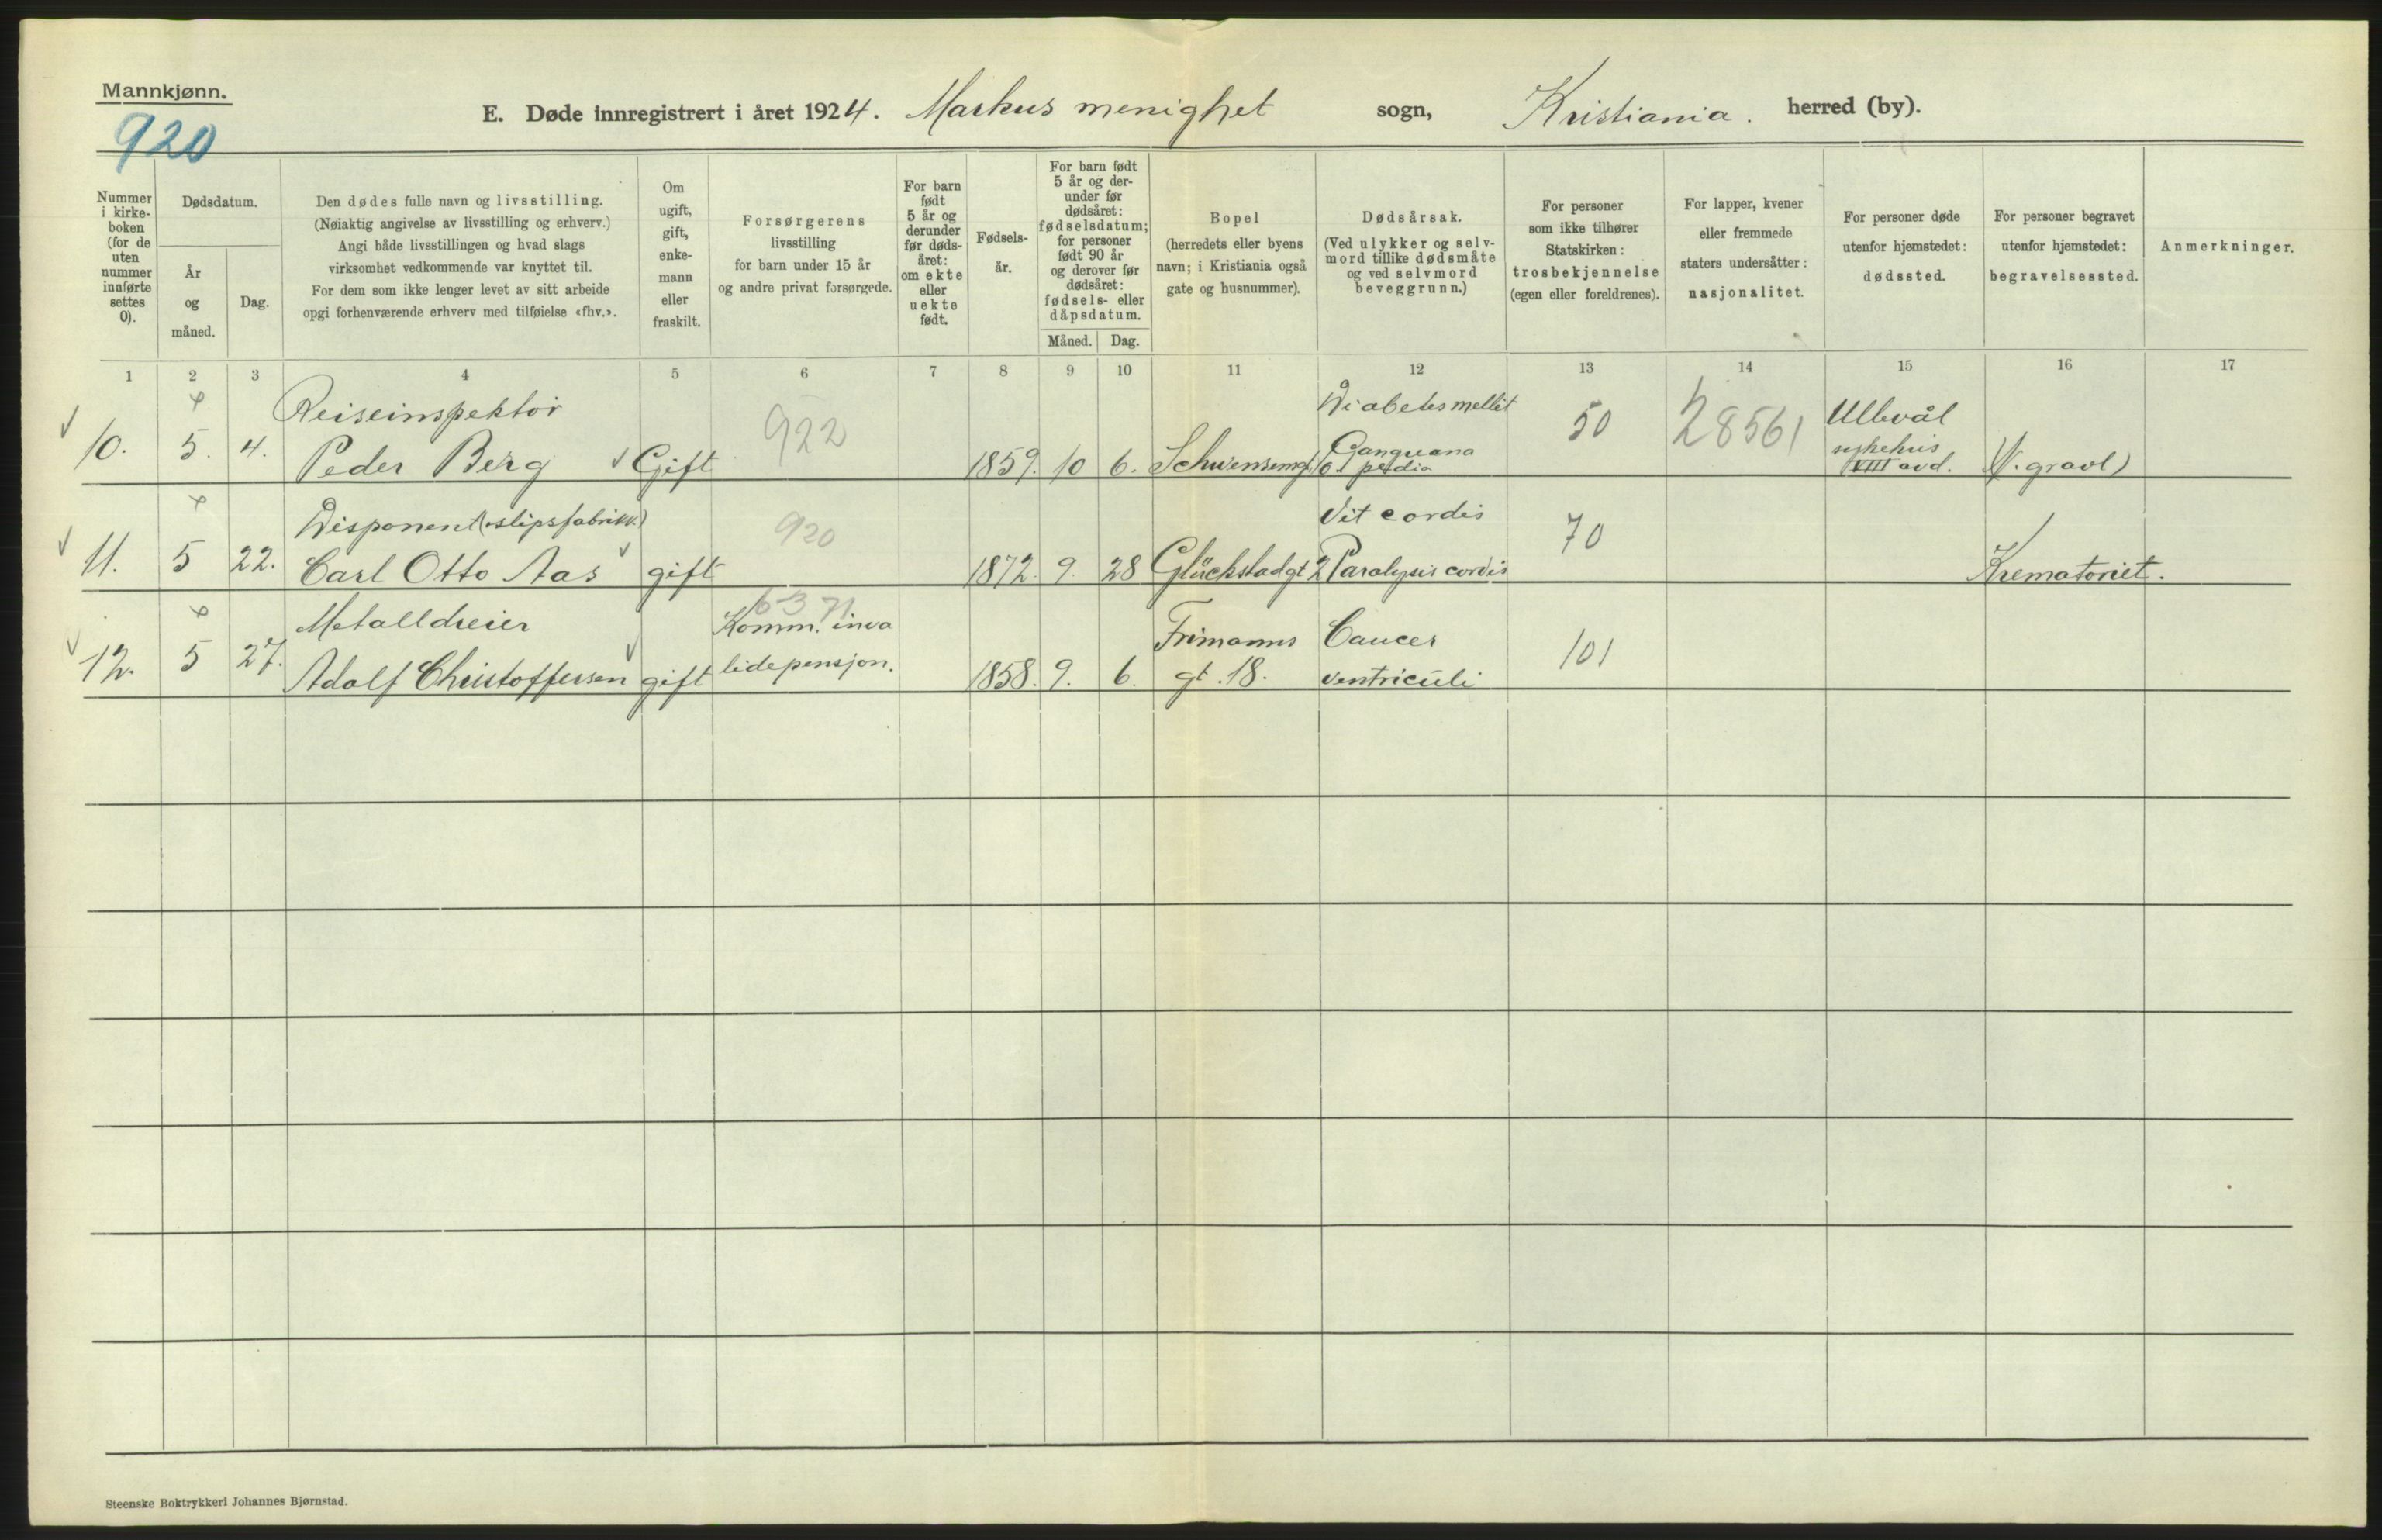 Mannkjønn.
920
E. Døde innregistrert i året 1924. Markus menighet sogn, Kristiania. herred (by).
Nummer i kirke-boken (for de uten nummer innførte settes 0).
Dødsdatum.
År og måned.
Dag.
Den dødes fulle navn og livsstilling.
(Nøiaktig angivelse av livsstilling og erhverv.)
Angi både livsstillingen og hvad slags
virksomhet vedkommende var knyttet til.
For dem som ikke lenger levet av sitt arbeide
opgi forhenværende erhverv med tilføielse «fhv.».
Om ugift, gift, enke-mann eller fraskilt.
Forsørgerens
livsstilling
for barn under 15 år
og andre privat forsørgede.
For barn født 5 år og derunder før døds-året: om ekte eller uekte født.
Fødsels-år.
For barn født 5 år og der-under før dødsåret: fødselsdatum; for personer født 90 år og derover før dødsåret: fødsels- eller dåpsdatum.
Måned.
Dag.
Bopel
(herredets eller byens
navn; i Kristiania også
gate og husnummer).
Dødsårsak.
(Ved ulykker og selv-
mord tillike dødsmåte
og ved selvmord
beveggrunn.)
For personer
som ikke tilhører
Statskirken:
trosbekjennelse
(egen eller foreldrenes).
For lapper, kvener
eller fremmede
staters undersåtter:
nasjonalitet.
For personer døde
utenfor hjemstedet:
dødssted.
For personer begravet
utenfor hjemstedet:
begravelsessted.
Anmerkninger.
1 2 3 4 5 6 7 8 9 10 11 12 13 14 15 16 17
Reiseinspektør
922
Diabetes mellit
50
28561
Ullevål
sykehus
10. 5. 4. Peder Berg Gift 1859. 10 6. Schwensensgt 6
Gangrena
pedia
VIII avd.
(V. gravl)
Disponent (slipsfabrikk)
920
Vit cordis
70
11. 5 22. Carl Otto Aas gift 1872. 9. 28 Glückstadgt 2 Paralysis cordis Krematoriet.
Metalldreier
6371
Komm. inva
Frimanns Cancer
101
12. 5 27. Adolf Christoffersen gift lidepensjon. 1858. 9. 6. gt. 18. ventriculi
Steenske Boktrykkeri Johannes Bjørnstad.